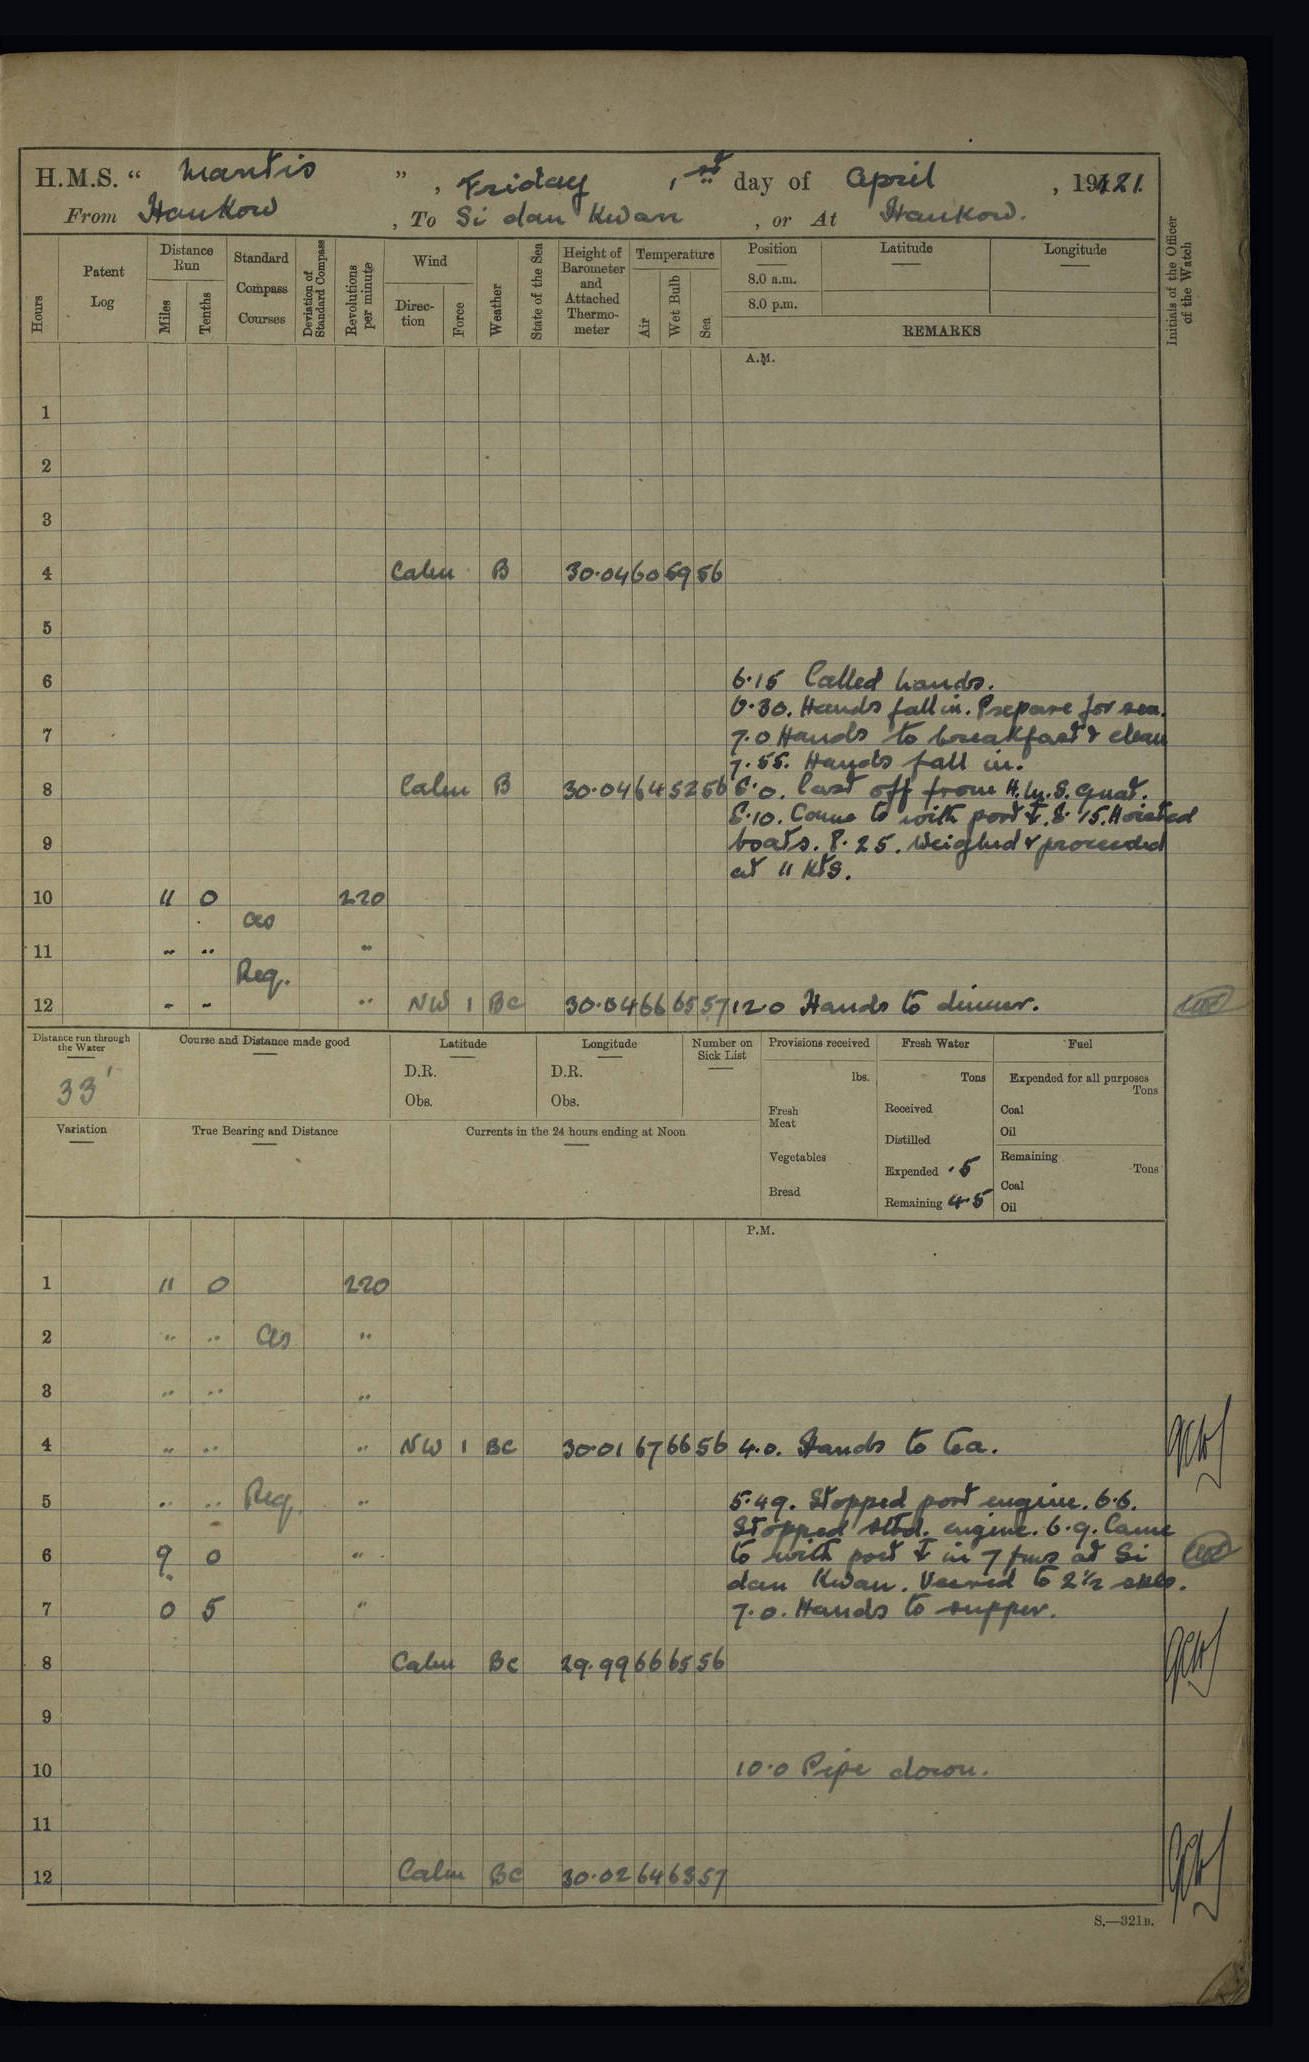 H.M.S. “ Mantis ” , Friday , 1st day of April , 1921.
From Hankow , To Si dan Kwan , or At Hankow.
Hours
Patent Log
Distance Run
Miles
Tenths
Standard Compass Courses
Deviation of Standard Compass
Revolutions per minute
Wind
Direc-tion
Force
Weather
State of the Sea
Height of Barometer and Attached Thermo-meter
Temperature
Air
Wet Bulb
Sea
Position
Latitude
Longitude
8.0 a.m.
8.0 p.m.
REMARKS
Initials of the Officer of the Watch
A.M.
1
2
3
4 Calm B 30.04 60 59 56
5
6 6.15 Called hands.
6.30. Hands fall in. Prepare for sea.
7 7.0 Hands to breakfast & clean
7.55. Hands fall in.
8 Calm B 30.04 64 52 56 8.0. Cast off from H.M.S. Gnat.
8.10. Came to with port ⚓. 8.15. Hoisted
9 boats. 8.25. Weighed & proceeded
at 11 Kts.
10 11 0 220
as
11 " " "
Req.
12 " " " NW 1 BC 30.04 66 65 57 12.0 Hands to dinner.
Distance run through the Water
33'
Course and Distance made good
Latitude
D.R.
Obs.
Longitude
D.R.
Obs.
Number on Sick List
Provisions received
lbs.
Fresh Meat
Vegetables
Bread
Fresh Water
Tons
Received
Distilled
Expended .5
Remaining 4.5
Fuel
Expended for all purposes
Tons
Coal
Oil
Remaining
Tons
Coal
Oil
Variation
True Bearing and Distance
Currents in the 24 hours ending at Noon
P.M.
1 11 0 220
2 " " as "
3 " " "
4 " " " NW 1 BC 30.01 67 66 56 4.0. Hands to tea.
5 " " Req. " 5.49. Stopped port engine. 6.6.
Stopped stbd. engine. 6.9. Came
6 9 0 " to with port ⚓ in 7 fms at Si
dan Kwan. Veered to 2½ skls.
7 0 5 " 7.0. Hands to supper.
8 Calm BC 29.99 66 65 56
9
10 10.0 Pipe down.
11
12 Calm BC 30.02 64 63 57
S.—321B.